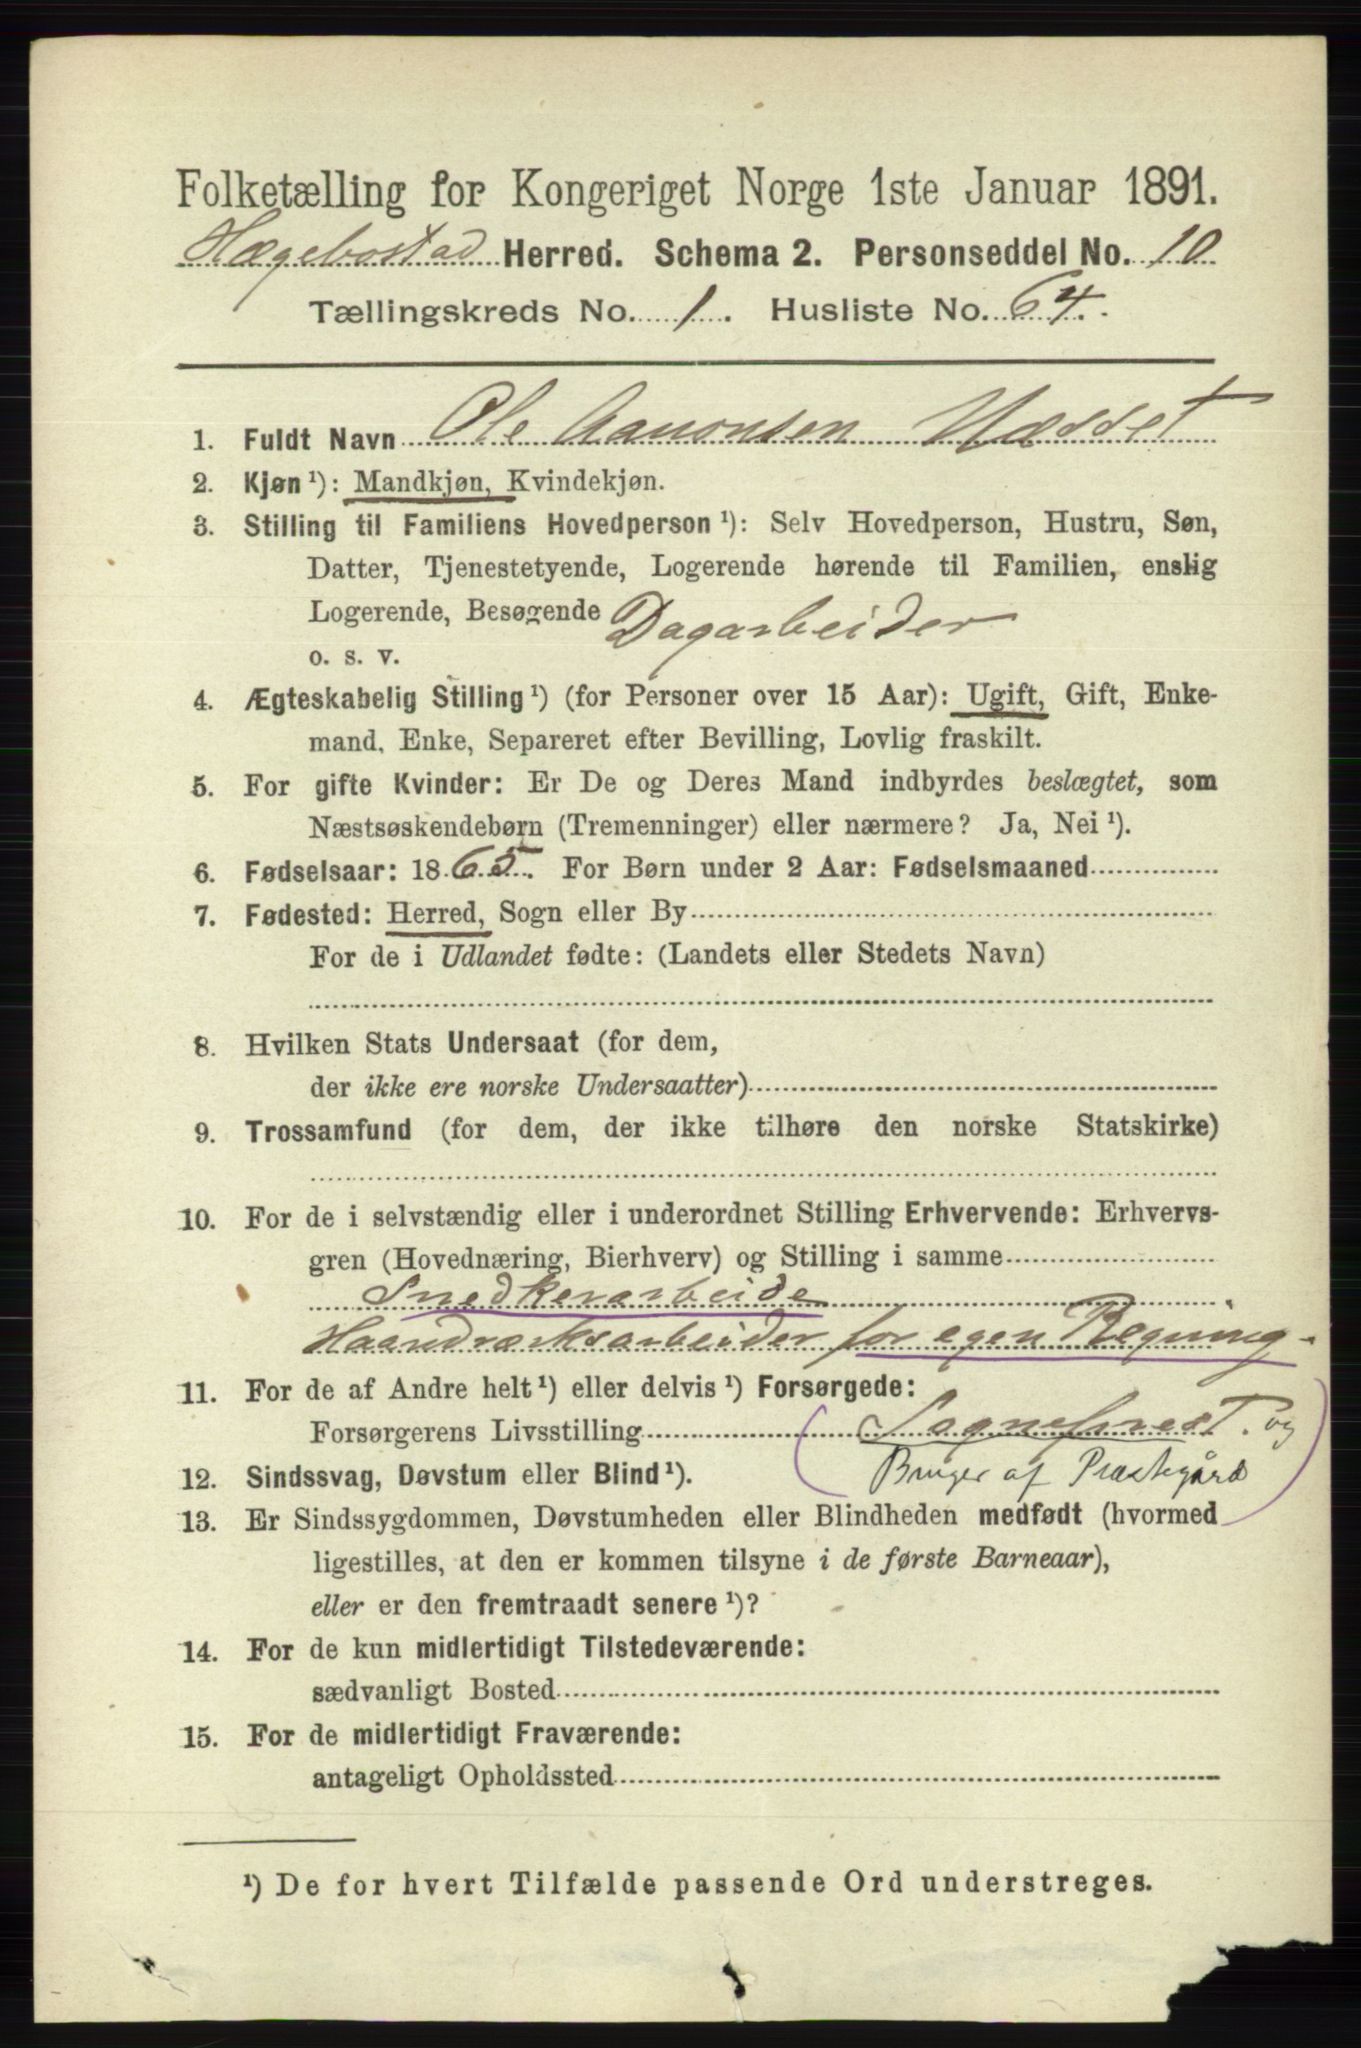 Folketælling for Kongeriget Norge 1ste Januar 1891.
Hægebostad Herred. Schema 2. Personseddel No. 10
Tællingskreds No. 1. Husliste No. 64.
1. Fuldt Navn Ole Aanonsen Næsset
2. Kjøn ¹): Mandkjøn, Kvindekjøn.
3. Stilling til Familiens Hovedperson ¹): Selv Hovedperson, Hustru, Søn,
Datter, Tjenestetyende, Logerende hørende til Familien, enslig
Logerende, Besøgende Dagarbeider
o. s. v.
4. Ægteskabelig Stilling ¹) (for Personer over 15 Aar): Ugift, Gift, Enke-
mand, Enke, Separeret efter Bevilling, Lovlig fraskilt.
5. For gifte Kvinder: Er De og Deres Mand indbyrdes beslægtet, som
Næstsøskendebørn (Tremenninger) eller nærmere? Ja, Nei ¹).
6. Fødselsaar: 1865. For Børn under 2 Aar: Fødselsmaaned
7. Fødested: Herred, Sogn eller By
For de i Udlandet fødte: (Landets eller Stedets Navn)
8. Hvilken Stats Undersaat (for dem,
der ikke ere norske Undersaatter)
9. Trossamfund (for dem, der ikke tilhøre den norske Statskirke)
10. For de i selvstændig eller i underordnet Stilling Erhvervende: Erhvervs-
gren (Hovednæring, Bierhverv) og Stilling i samme
Snedkerarbeide
Haandværksarbeider for egen Regning.
11. For de af Andre helt ¹) eller delvis ¹) Forsørgede:
Forsørgerens Livsstilling (Sogneprest. og
12. Sindssvag, Døvstum eller Blind ¹). Bruger af Præstegård)
13. Er Sindssygdommen, Døvstumheden eller Blindheden medfødt (hvormed
ligestilles, at den er kommen tilsyne i de første Barneaar),
eller er den fremtraadt senere ¹)?
14. For de kun midlertidigt Tilstedeværende:
sædvanligt Bosted
15. For de midlertidigt Fraværende:
antageligt Opholdssted
¹) De for hvert Tilfælde passende Ord understreges.